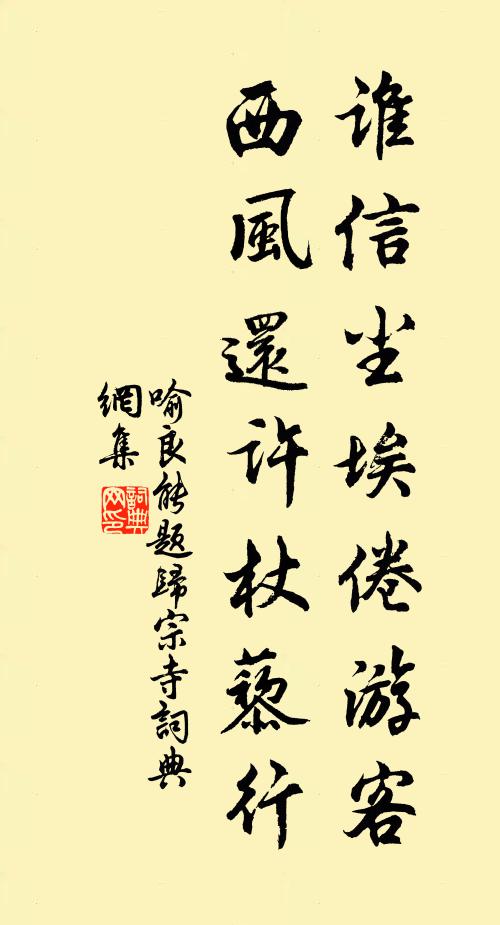 谁信尘埃倦游客
西風還许杖藜行
喻良能題歸宗寺詞典
網集
詞典
网印